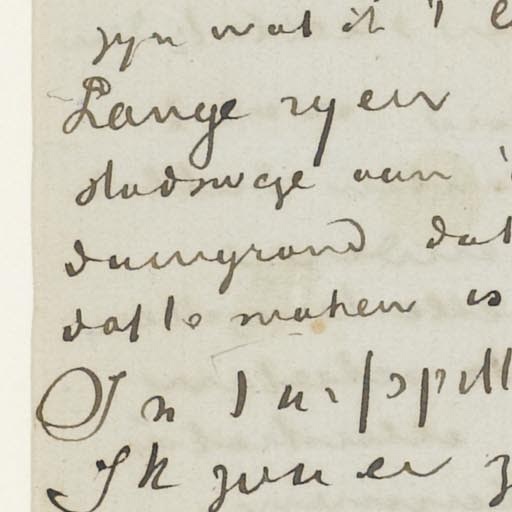 zyn wat ik
Lange ryen
stadswege aan
duingrond dat
dat te maken is
In
Ik zou er z